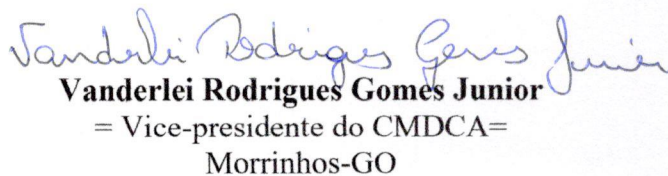 Vanderlei Rodrigues Gomes Junior
Vanderlei Rodrigues Gomes Junior
= Vice-presidente do CMDCA=
Morrinhos-GO